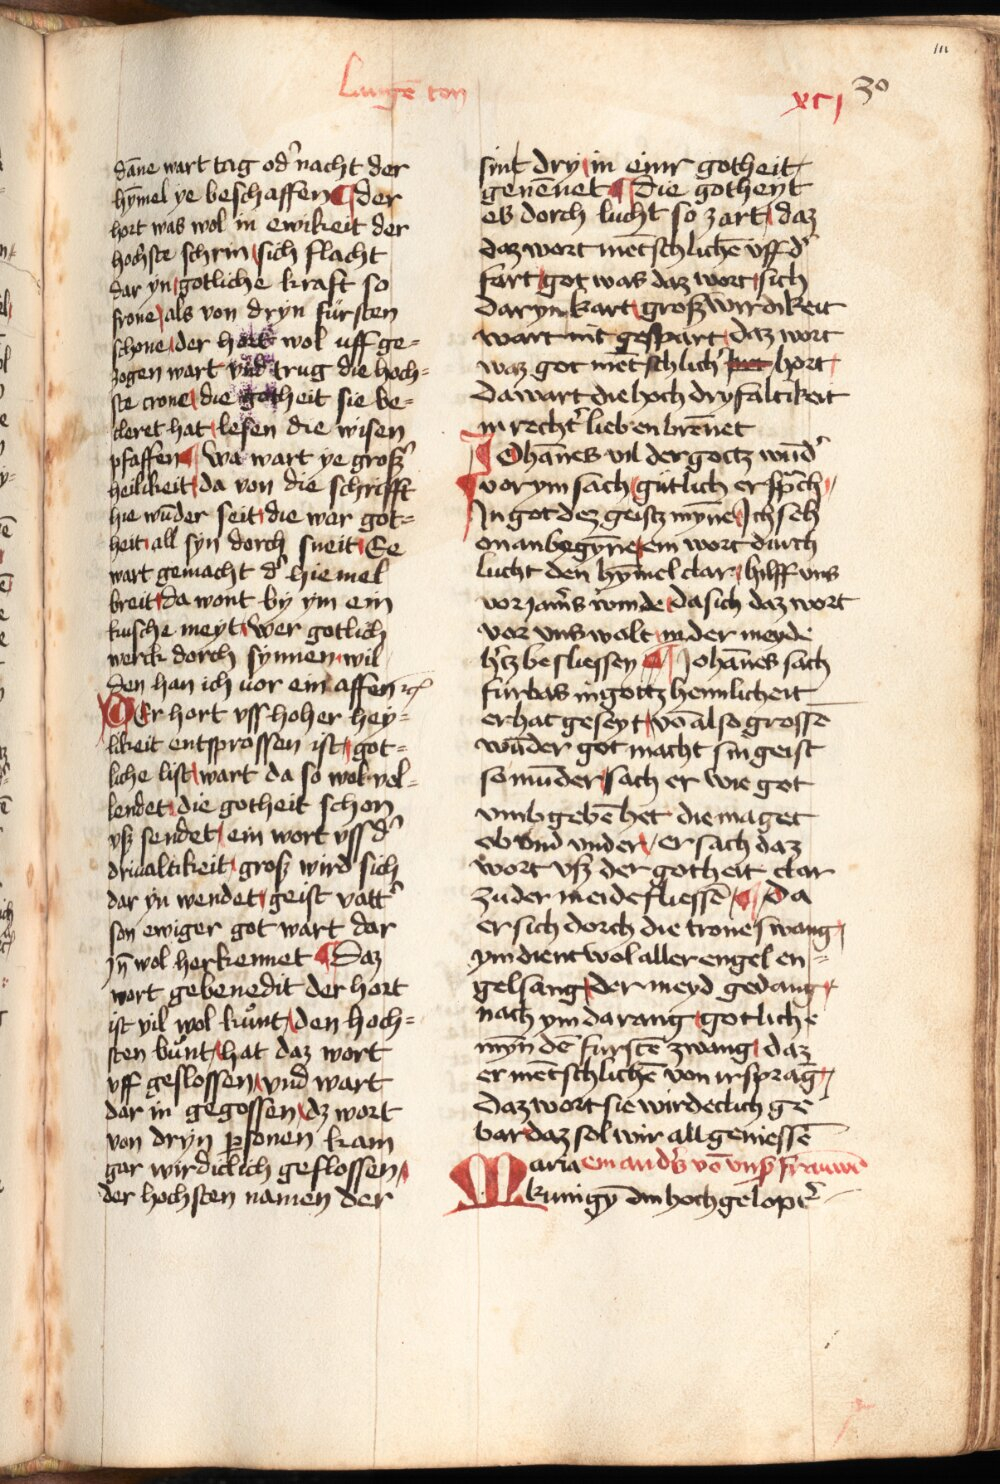 Langē ton
xcj 30
m
dāne wart tag od' nacht der
hȳmel ye beschaffen ¶ der
hort was wol in ewikeit der
hochste schrin / sich flacht
dar yn / gotliche kraft so
frone / als von dryn fürsten
schone / der hort wol uff ge=
zogen wart vnd trug die hoch=
ste crone / die gotheit sie be=
cleret hat / lesen die wisen
pfaffen ¶ Wa wart ye grosz'
heilikeit / da von die schrifft
hie wūder seit / die war got=
heit / all syn dorch sneit / Ee
wart gemacht d' hiemel
breit / da wont by ym ein
kusche meyt / Wer gotlich
werck dorch synnen / wil
den han ich vor ein affen
Der hort vss hoher hey=
likeit entsprossen ist / got=
liche list / wart da so wol vol=
lendet / die gotheit schon
vsz sendet / ein wort vss d'
driualtikeit / grosz wird sich
dar yn wendet / geist vatt'
son ewiger got wart dar
yn̄ wol herkennet ¶ Daz
wort gebenedit der hort
ist vil wol kunt / den hoch=
sten bunt / hat daz wort
vff geslossen / vnd wart
dar in gegossen / dz wort
von dryn p̱sonen kam
gar wirdiclich geflossen /
der hochsten namen der
sint dry / in einr gotheit /
genēnet ¶ Die gotheyt
eb dorch lucht so zart / daz
daz wort mētschlichē vff d'
fart / got was daz wort / sich
dar yn kart / grosz wirdikeit
wart nit gespart / daz wort
waz got mētschlich' hort /
Da wart die hoch dryfaltikeit
in recht' lieb enbrēnet
Johānes vil der gottz wūd'
vor ym sach / gütlich er sp̄ch /
In got dez geistz mȳne / Ich seh
on anbegȳne / ein wort durch
lucht den hȳmel clar / hilff vns
vor jam's winde / Da sich daz wort
vor vns walt / in der meyde
h'tz besliessen ¶ Johānes sach
fürbas in gottz heimlicheit
er hat geseyt / vō also grossē
wūder got macht sin geist
so mūder / sach er wie got
vmb gebē het die maget
ob vnd vnder / er sach daz
wort vsz der gotheit clar
zu der meide fliessē / ¶ / Da
er sich dorch die trone swang /
ym dient wol aller engel en=
gel sang / der meyd gedang /
nach ym da rang / gotliche
myn dē fürstē zwang / daz
er mētschlichē von ir sprāg /
Daz wort sie wirdeclich ge
bar daz sol wir all geniessē
Maria ein and's vō vnß frauwē
kunigȳ ein hoch gelopt'